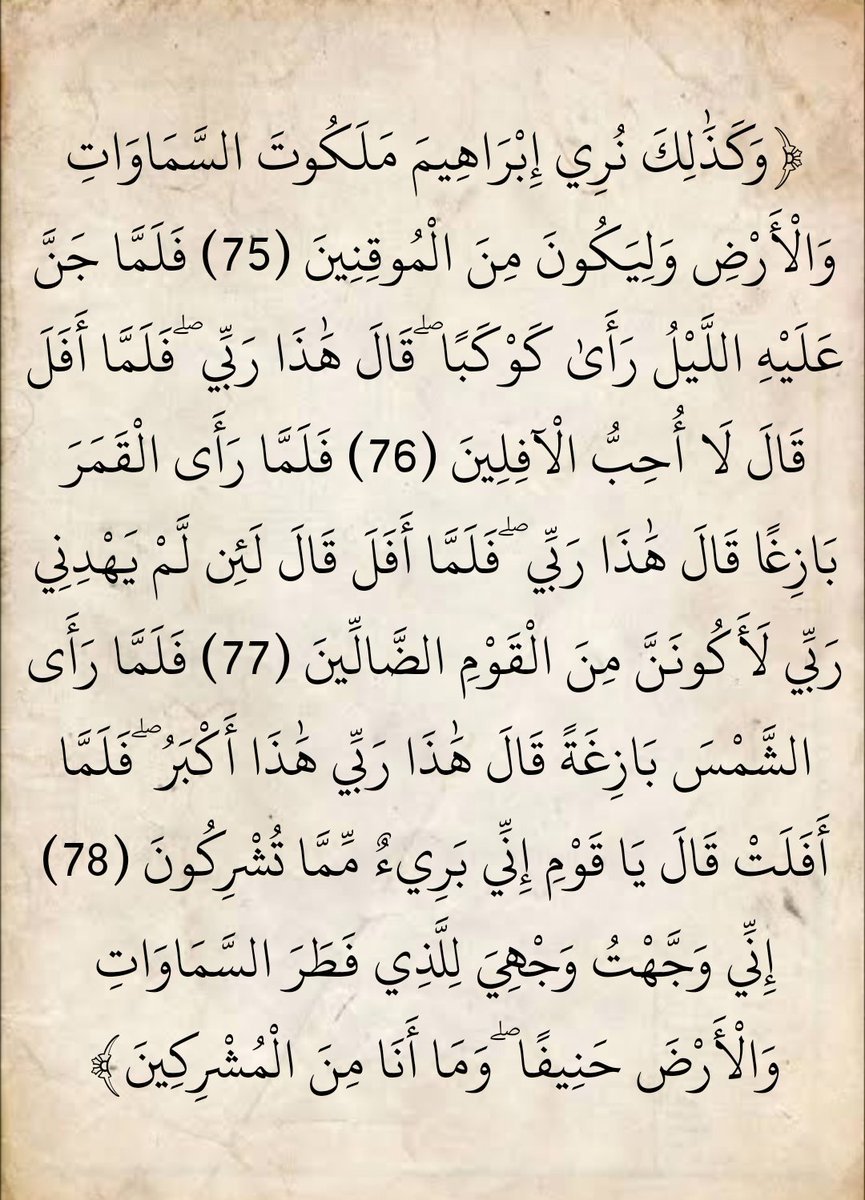 ﴿وَكَذَٰلِكَ نُرِي إِبْرَاهِيمَ مَلَكُوتَ السَّمَاوَاتِ
وَالْأَرْضِ وَلِيَكُونَ مِنَ الْمُوقِنِينَ (75) فَلَمَّا جَنَّ
عَلَيْهِ اللَّيْلُ رَأَىٰ كَوْكَبًا ۖ قَالَ هَٰذَا رَبِّي ۖ فَلَمَّا أَفَلَ
قَالَ لَا أُحِبُّ الْآفِلِينَ (76) فَلَمَّا رَأَى الْقَمَرَ
بَازِغًا قَالَ هَٰذَا رَبِّي ۖ فَلَمَّا أَفَلَ قَالَ لَئِن لَّمْ يَهْدِنِي
رَبِّي لَأَكُونَنَّ مِنَ الْقَوْمِ الضَّالِّينَ (77) فَلَمَّا رَأَى
الشَّمْسَ بَازِغَةً قَالَ هَٰذَا رَبِّي هَٰذَا أَكْبَرُ ۖ فَلَمَّا
أَفَلَتْ قَالَ يَا قَوْمِ إِنِّي بَرِيءٌ مِّمَّا تُشْرِكُونَ (78)
إِنِّي وَجَّهْتُ وَجْهِيَ لِلَّذِي فَطَرَ السَّمَاوَاتِ
وَالْأَرْضَ حَنِيفًا ۖ وَمَا أَنَا مِنَ الْمُشْرِكِينَ﴾